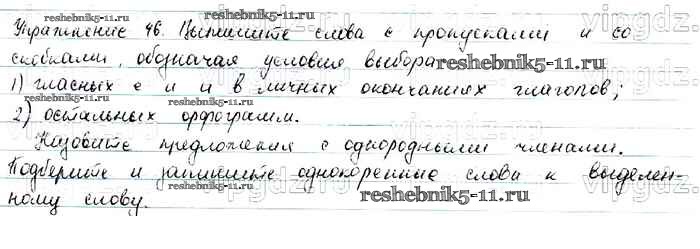 reshebnik5-11.ru
Упражнение 46. Выпишите слова с пропусками и со
скобками, обозначая условия выбора
reshebnik5-11.ru
1) гласных е и и в личных окончаниях глаголов;
reshebnik5-11.ru
2) остальных орфограмм.
Назовите предложения с однородными членами.
Подберите и запишите однокоренные слова к выделен-
reshebnik5-11.ru
ному слову.
reshebnik5-11.ru
vipgdz.ru